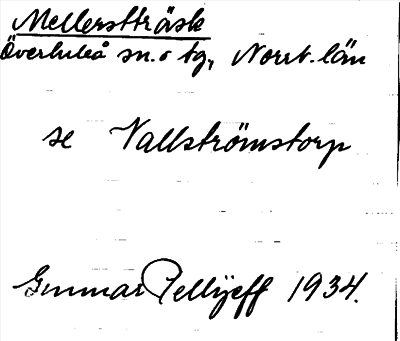 Mellersträsk
Överluleå sn. o tg, Norrb. län
se Vallströmstorp
Gunnar Pellijeff 1934.